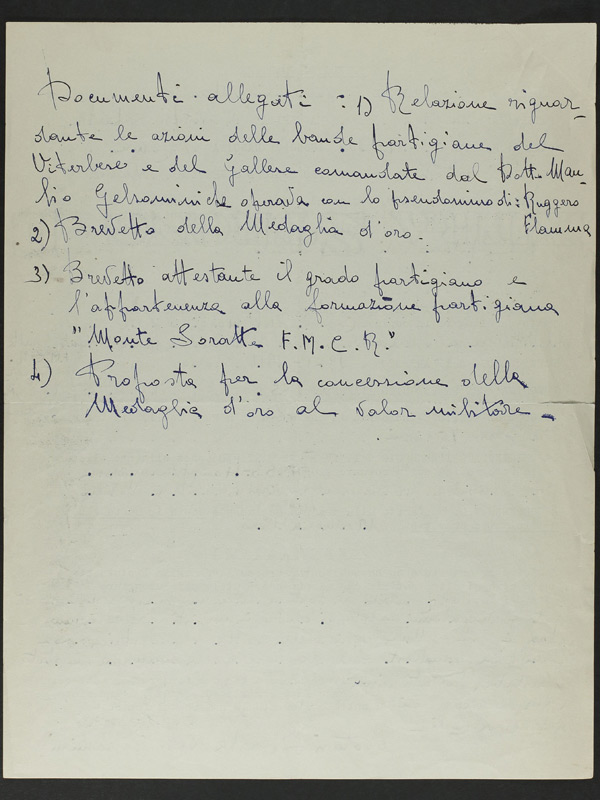 Documenti allegati : 1) Relazione riguar-
dante le azioni delle bande partigiane del
Viterbese e del Gallese comandate dal Dott. Man-
lio Gelsomini che operava con lo pseudonimo di: Ruggero
Flamma
2) Brevetto della Medaglia d'oro.
3) Brevetto attestante il grado partigiano e
l'appartenenza alla formazione partigiana
"Monte Soratte F.M.C.R."
4) Proposta per la concessione della
Medaglia d'oro al valor militare -